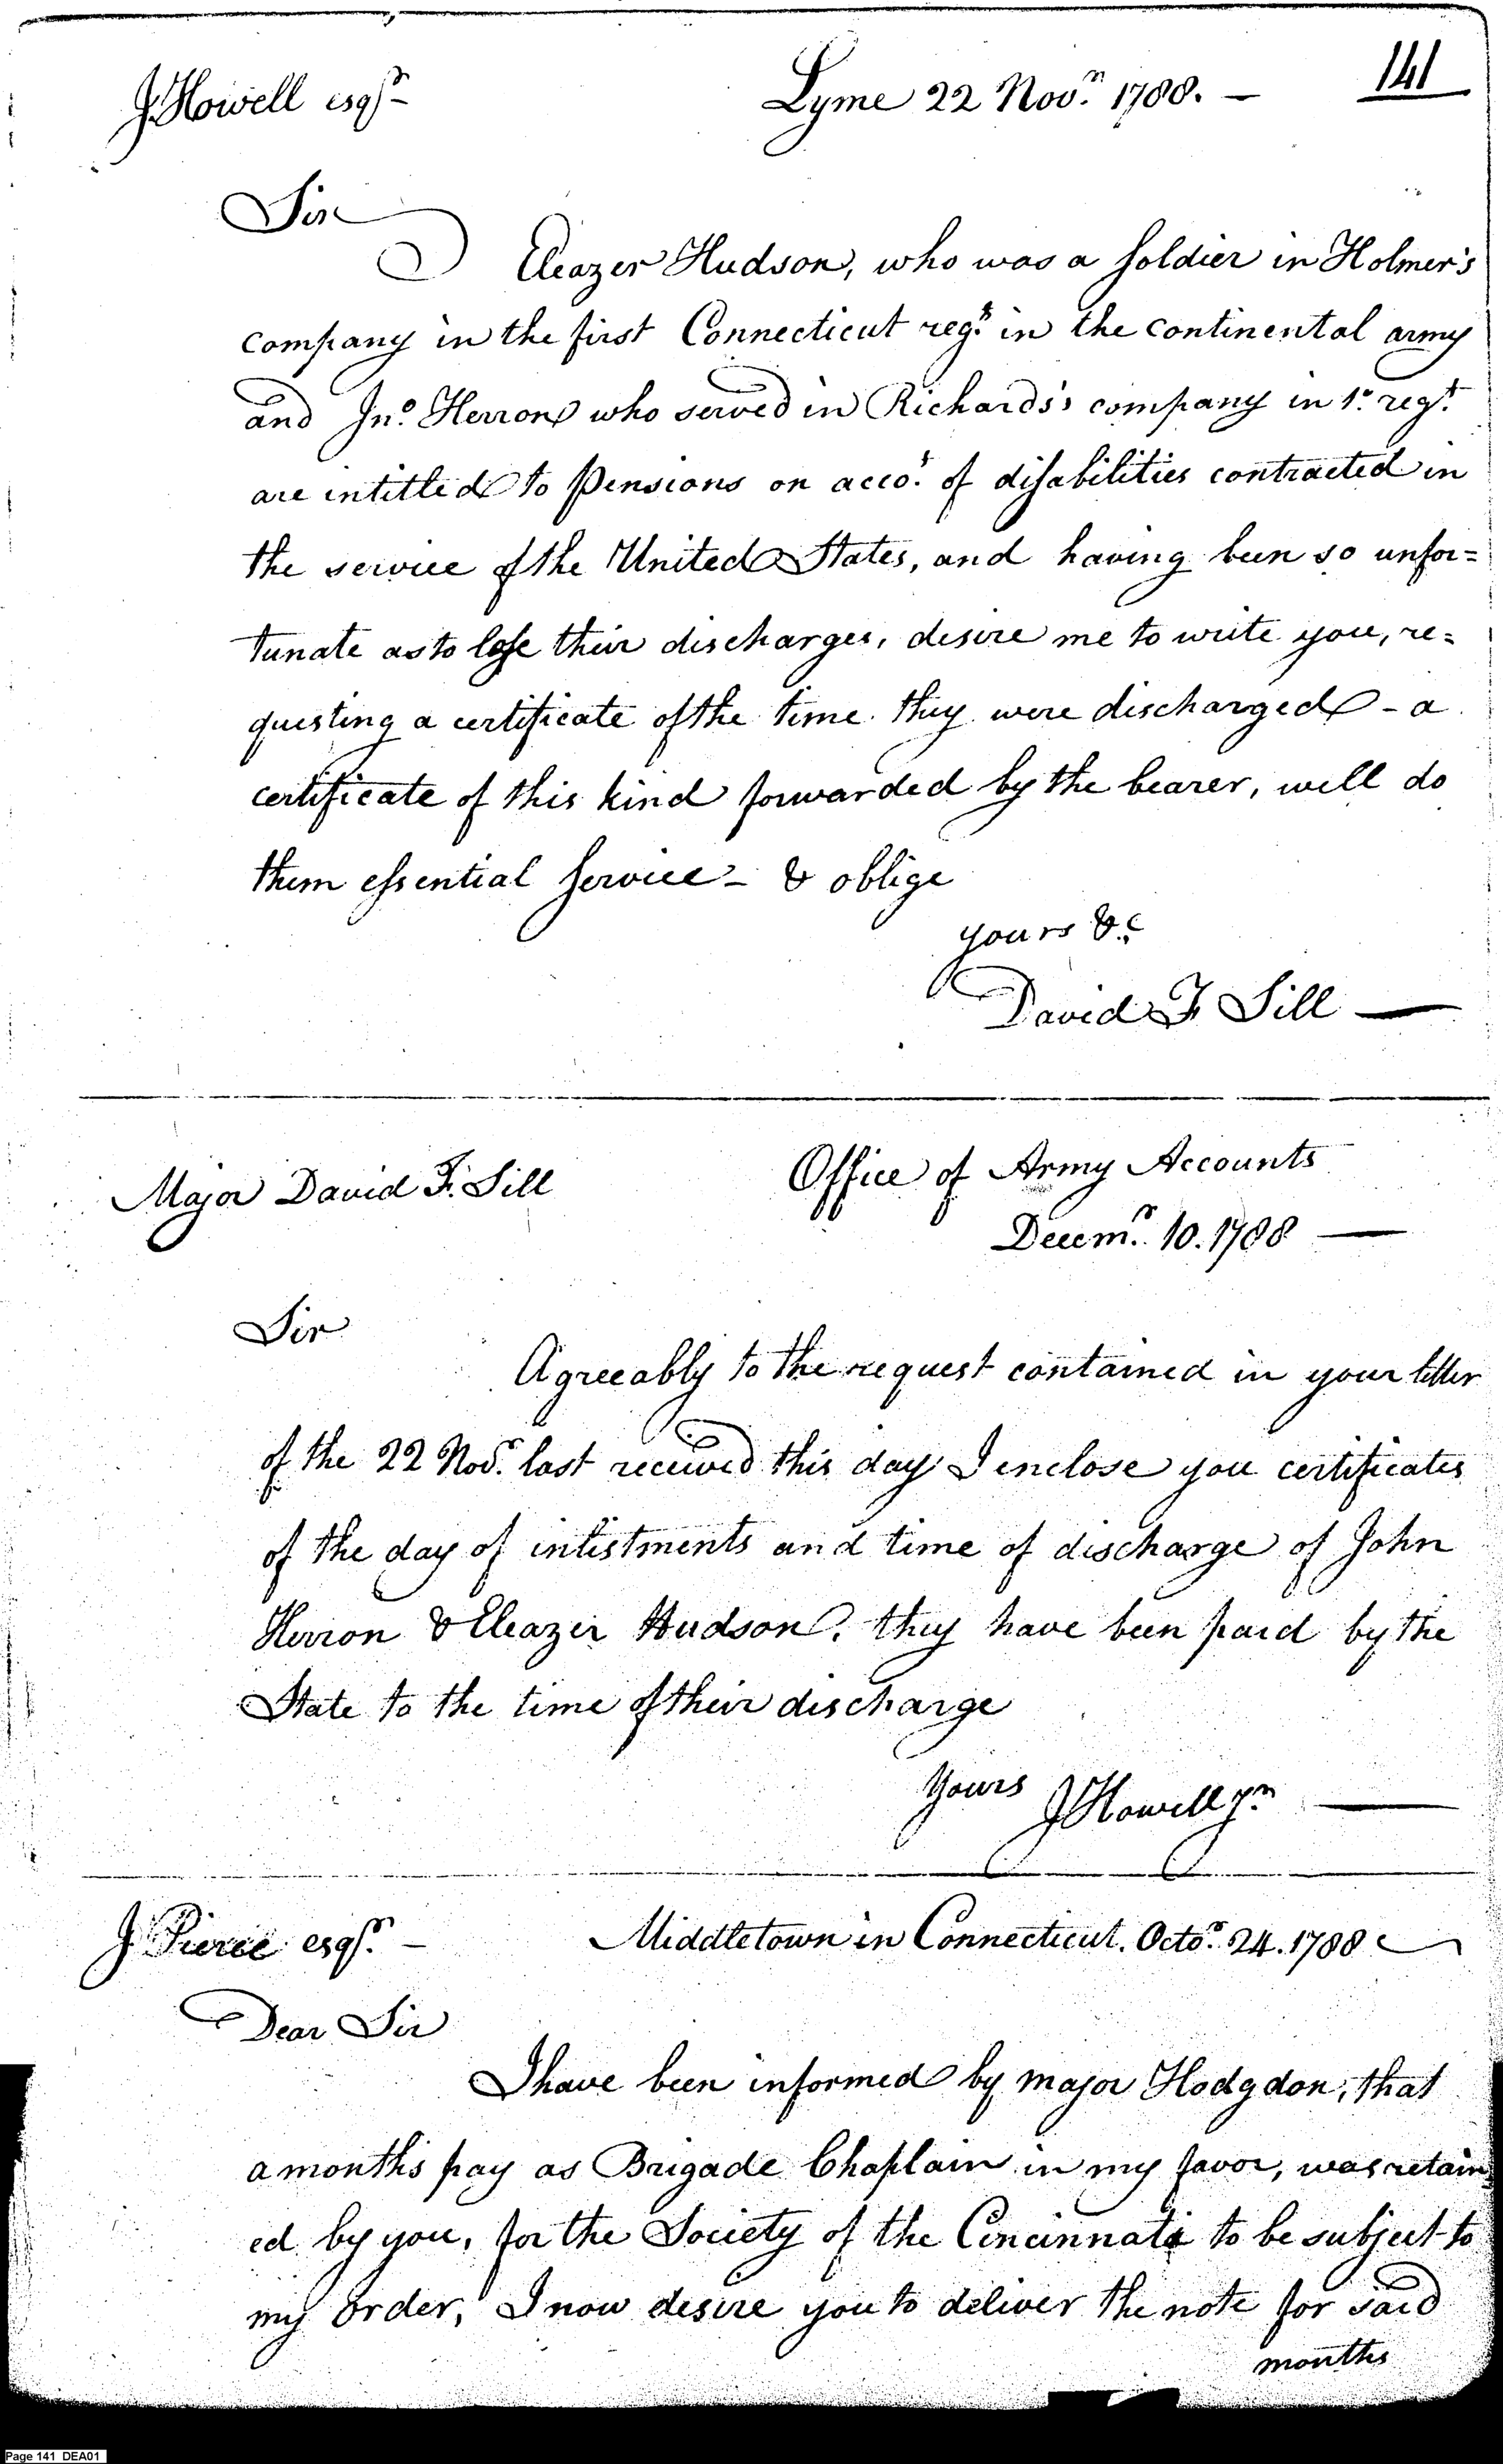 141
J Howell esqr. Lyme 22 Novr. 1788.
Sir
Eleazer Hudson, who was a soldier in Holmer's
company in the first Connecticut regt. in the continental army
and Jno. Herron who served in Richards's company in 1st regt.
are intitled to Pensions on accot. of disabilities contracted in
the service of the United States, and having been so unfor=
tunate as to lose their discharges, desire me to write you, re=
questing a certificate of the time they were discharged - a
certificate of this kind forwarded by the bearer, will do
them essential service - & oblige
yours &c
David F Sill
Major David F. Sill Office of Army Accounts
Decemr. 10. 1788
Sir
Agreeably to the request contained in your letter
of the 22 Novr. last received this day I enclose you certificates
of the day of inlistments and time of discharge of John
Herron & Eleazer Hudson. they have been paid by the
State to the time of their discharge
Yours J Howell jr.
J Pierce esqr. Middletown in Connecticut. Octor. 24. 1788
Dear Sir
I have been informed by major Hodgdon, that
a months pay as Brigade Chaplain in my favor, was retain
ed by you, for the Society of the Cincinnati to be subject to
my order, I now desire you to deliver the note for said
months
Page 141 DEA01